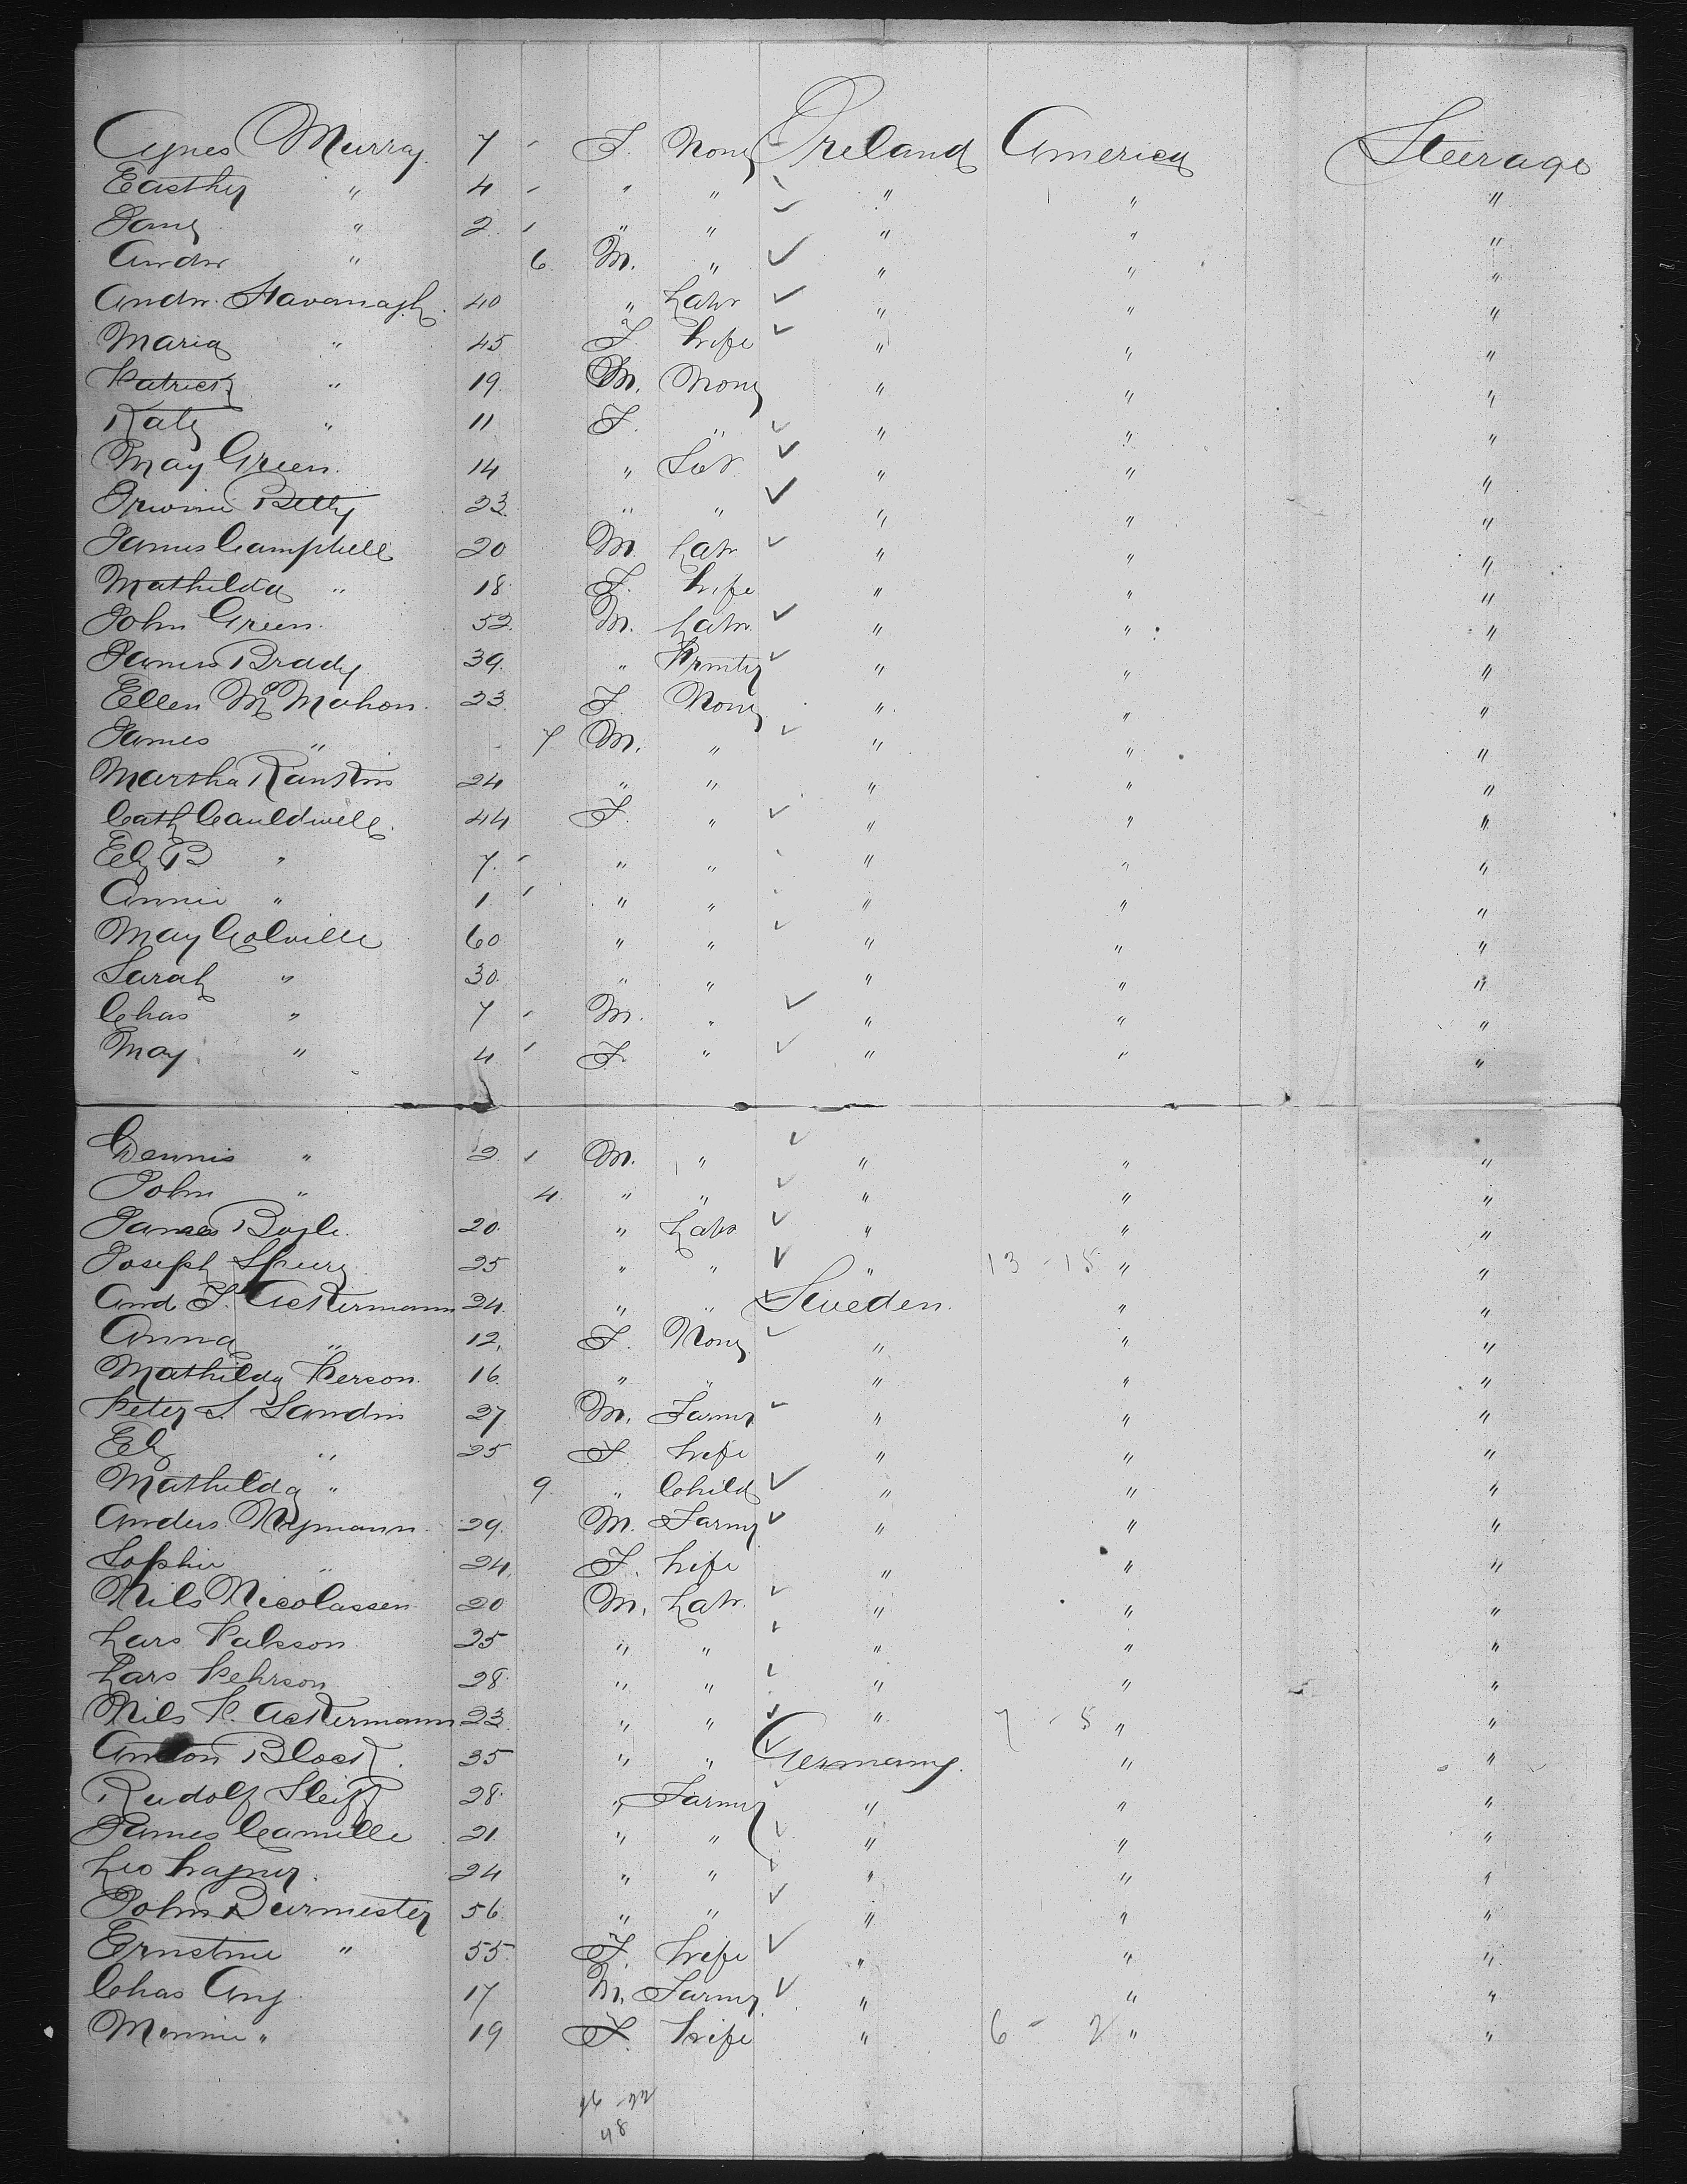 Agnes Murray. 7 F. None Ireland America Steerage
Easther " 4 " " " " "
Jane " 2. " " " " "
Andw " 6. M. " " " "
Andw. Kavanagh. 40 " Labr " " "
Maria " 45 F. Wife " " "
Patrick " 19. M. None " " "
Kate " 11 F. " " " "
May Green. 14 " Sevt " " "
Betty 23. " " " " "
James Campbell 20 M. Labr " " "
Mathilda " 18. F. Wife " " "
John Green. 52. M. Labr. " " "
James Brady. 39. " " " "
Ellen McMahon. 23. F. None " " "
James " 7 M. " " " "
Martha Rankin 24 " " " " "
Cath Cauldwell. 44 F. " " " "
Elz B " 7. " " " " "
Annie " 1. " " " " "
May Colville 60 " " " " "
Sarah " 30. " " " " "
Chas " 7 M. " " " "
May. " 4. F. " " " "
Dennis " 2. M. " " " "
John " 4. " " " " "
James Boyle. 20. " Labr " " "
Joseph 25 " " " 13 - 15 " "
And F. Ackermann 24. " " Sweden. " "
Anna " 12. F. None " " "
Mathilda Person. 16. " " " " "
Peter S. Sandin 27 M. Farmr " " "
Elz " 25 F. Wife " " "
Mathilda " 9. " Child " " "
Anders Nymann. 29. M. Farmr " " "
Sophie " 24. F. Wife " " "
Nils Nicolassen. 20 M. Labr. " " "
Lars Palsson 25 " " " " "
Lars Pehrson 28. " " " " "
Nils P. Ackermann 23. " " " 7 - 5 " "
Anton Block. 35 " " Germany. " "
Rudolf 28. " Farmer " " "
James Camille 21. " " " " "
Leo Wagner. 24 " " " " "
John Burmester 56. " " " " "
Ernstine " 55. F. Wife " " "
Chas Ang. 17 M. Farmer " " "
Minnie " 19 F. Wife " 6 - 2 " "
26 - 22
48